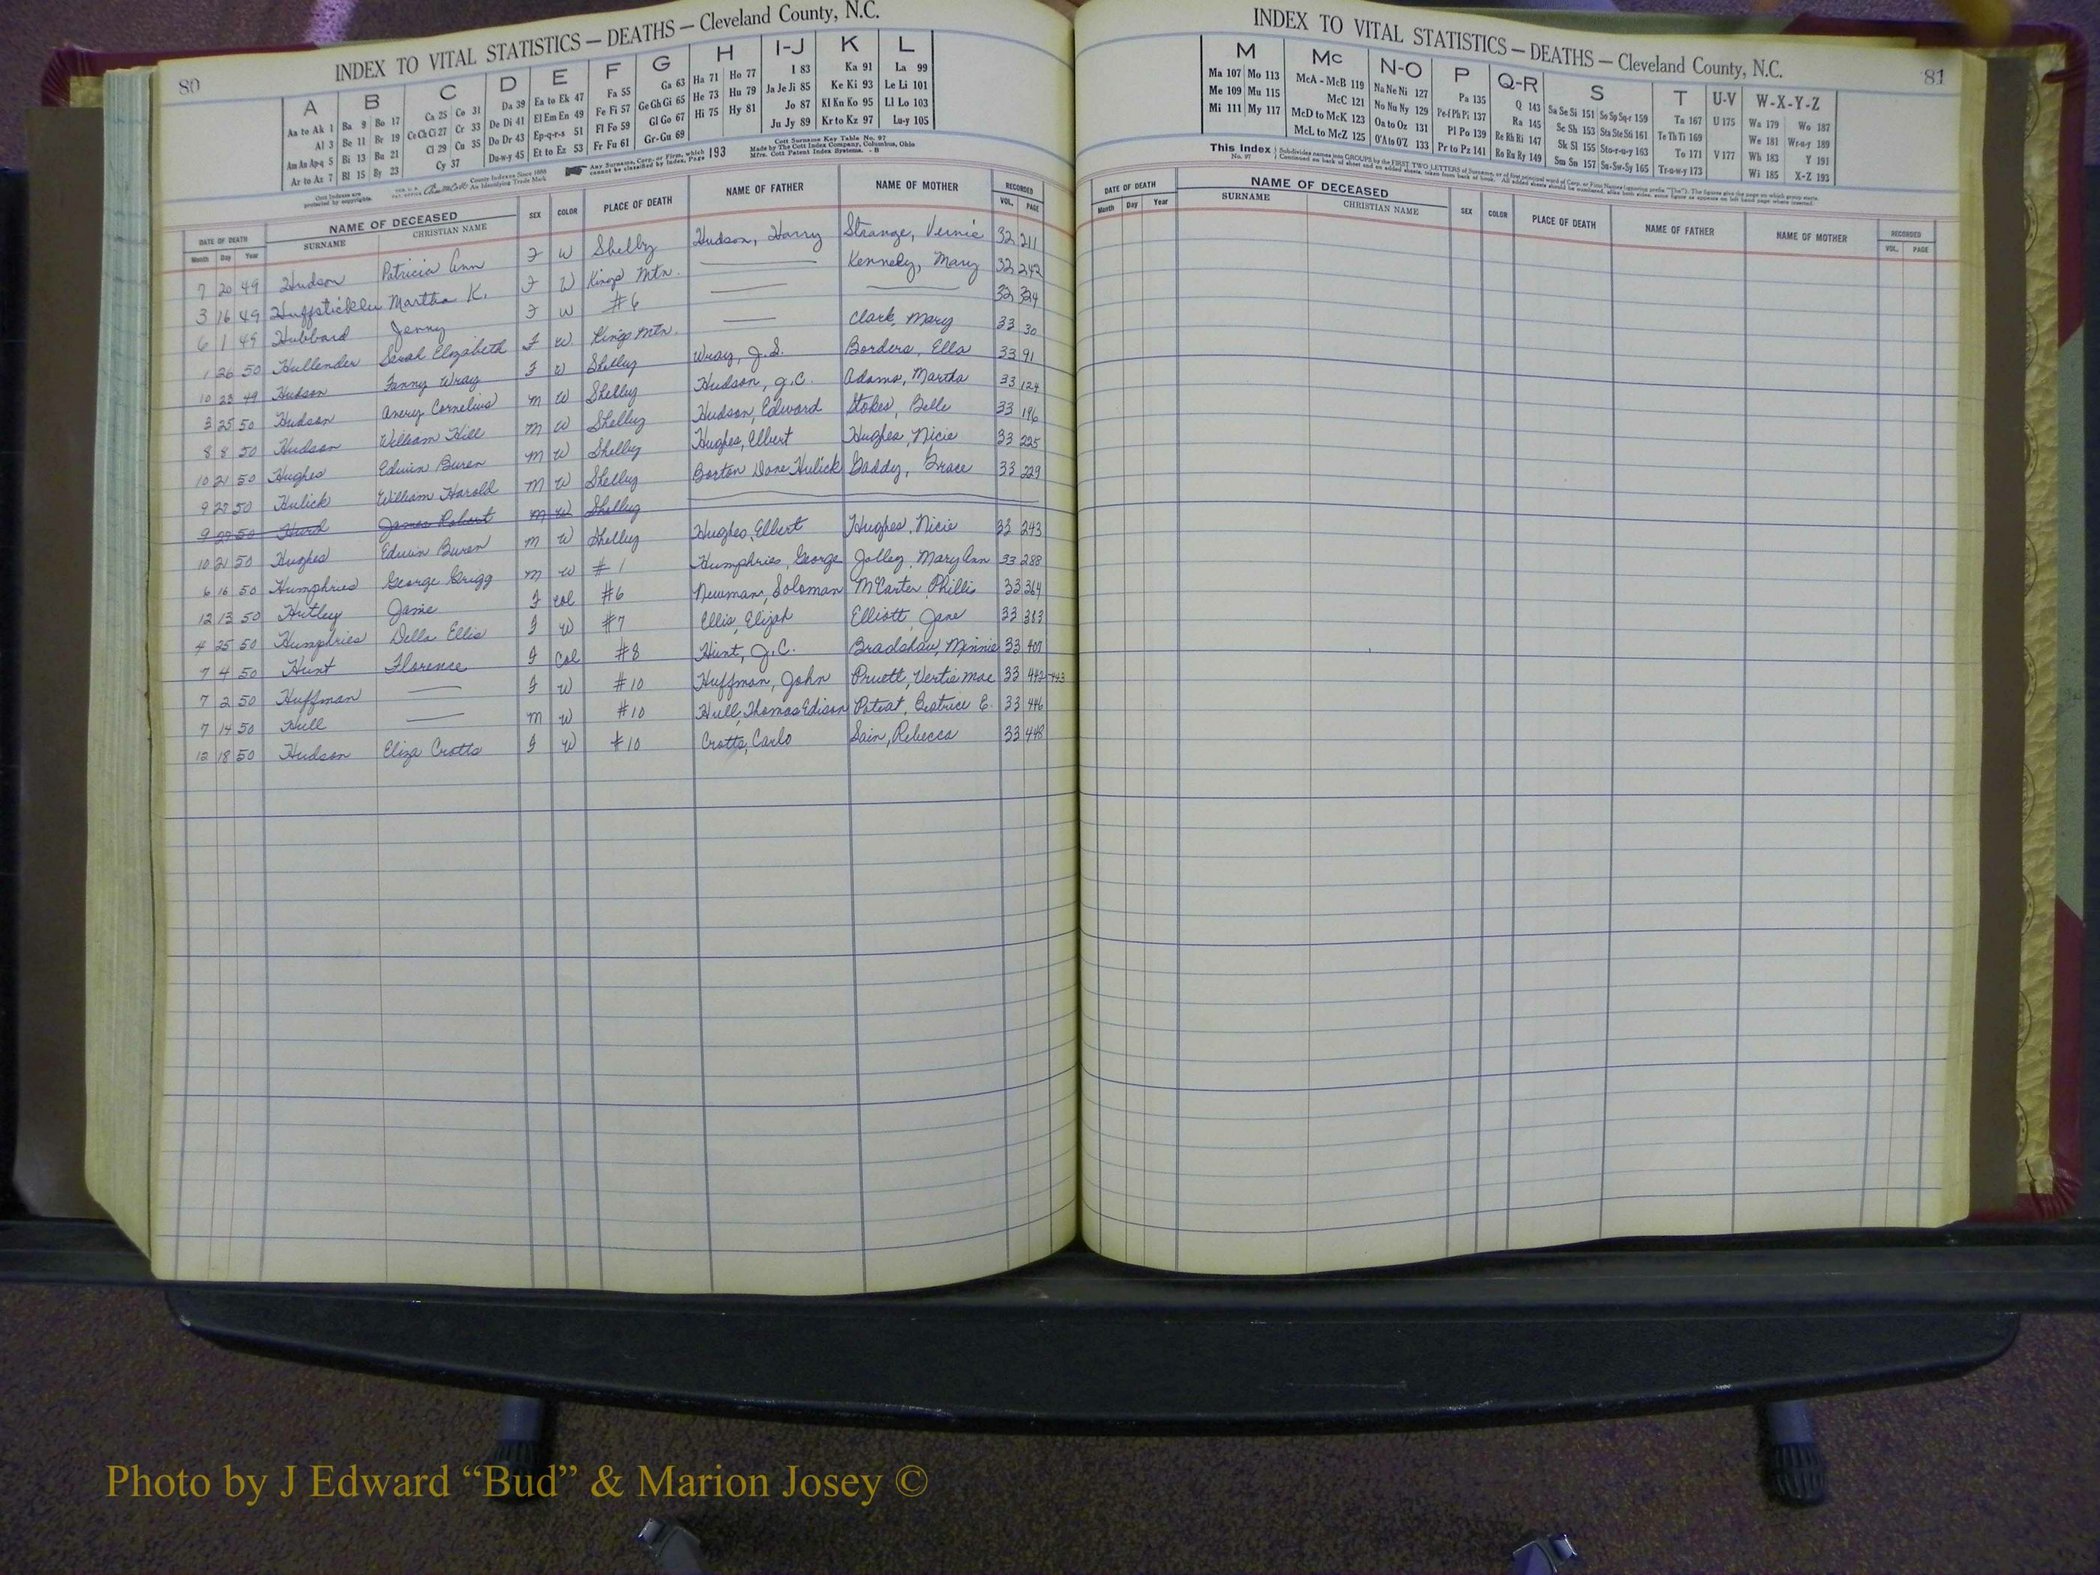 80
INDEX TO VITAL STATISTICS — DEATHS — Cleveland County, N.C.
A B C D E F G H I-J K L
Aa to Ak 1 Ba 9 Bo 17 Ca 25 Co 31 Da 39 Ea to Ek 47 Fa 55 Ga 63 Ha 71 Ho 77 I 83 Ka 91 La 99
Al 3 Be 11 Br 19 Ce Ch Ci 27 Cr 33 De Di 41 El Em En 49 Fe Fi 57 Ge Gh Gi 65 He 73 Hu 79 Ja Je Ji 85 Ke Ki 93 Le Li 101
Am An Ap-q 5 Bi 13 Bu 21 Cl 29 Cu 35 Do Dr 43 Ep-q-r-s 51 Fl Fo 59 Gl Go 67 Hi 75 Hy 81 Jo 87 Kl Kn Ko 95 Ll Lo 103
Ar to Az 7 Bl 15 By 23 Cy 37 Du-w-y 45 Et to Ez 53 Fr Fu 61 Gr-Gu 69 Ju Jy 89 Kr to Kz 97 Lu-y 105
Cott Indexes are protected by copyrights.
County Indexes Since 1888
An Identifying Trade Mark
Any Surname, Corp. or Firm, which cannot be classified by Index, Page 193
Cott Surname Key Table No. 97
Made by The Cott Index Company, Columbus, Ohio
Mfrs. Cott Patent Index Systems. - B
DATE OF DEATH NAME OF DECEASED SEX COLOR PLACE OF DEATH NAME OF FATHER NAME OF MOTHER RECORDED
Month Day Year SURNAME CHRISTIAN NAME VOL. PAGE
7 20 49 Hudson Patricia Ann F W Shelby Hudson, Harry Strange, Vernie 32 211
3 16 49 Huffstickler Martha K. F W Kings Mtn. — Kennedy, Mary 32 242
6 1 49 Hubbard Jenny F W #6 — — 32 324
1 26 50 Hullender Sarah Elizabeth F W Kings Mtn. — Clark, Mary 33 30
10 23 49 Hudson Fanny Wray F W Shelby Wray, J.S. Borders, Ella 33 91
3 25 50 Hudson Avery Cornelius M W Shelby Hudson, J.C. Adams, Martha 33 124
8 8 50 Hudson William Hill M W Shelby Hudson, Edward Stokes, Belle 33 196
10 21 50 Hughes Edwin Buren M W Shelby Hughes, Elbert Hughes, Nicie 33 225
9 27 50 Hulick William Harold M W Shelby Borton Dane Hulick Gaddy, Grace 33 229
9 50 Hurd James Robert M W Shelby
10 21 50 Hughes Edwin Buren M W Shelby Hughes, Elbert Hughes, Nicie 33 243
6 16 50 Humphries George Grigg M W #1 Humphries, George Jolley, Mary Ann 33 288
12 13 50 Hutley Janie F Col #6 Newman, Soloman McCarter, Phillis 33 364
4 25 50 Humphries Della Ellis F W #7 Ellis, Elijah Elliott, Jane 33 383
7 4 50 Hunt Florence F Col #8 Hunt, J.C. Bradshaw, Minnie 33 407
7 2 50 Huffman — F W #10 Huffman, John Pruett, Vertie Mae 33 442-443
7 14 50 Hull — M W #10 Hull, Thomas Edison Poteat, Beatrice E. 33 446
12 18 50 Hudson Eliza Crotts F W #10 Crotts, Carlo Sain, Rebecca 33 448
INDEX TO VITAL STATISTICS — DEATHS — Cleveland County, N.C.
81
M Mc N-O P Q-R S T U-V W-X-Y-Z
Ma 107 Mo 113 McA - McB 119 Na Ne Ni 127 Pa 135 Q 143 Sa Se Si 151 So Sp Sq-r 159 Ta 167 U 175 Wa 179 Wo 187
Me 109 Mu 115 McC 121 No Nu Ny 129 Pe Pf Ph Pi 137 Ra 145 Sc Sh 153 Sta Ste Sti 161 Te Th Ti 169 We 181 Wr-u-y 189
Mi 111 My 117 McD to McK 123 Oa to Oz 131 Pl Po 139 Re Rh Ri 147 Sk Sl 155 Sto-r-u-y 163 To 171 V 177 Wh 183 Y 191
McL to McZ 125 O'A to O'Z 133 Pr to Pz 141 Ro Ru Ry 149 Sm Sn 157 Su-Sw-Sy 165 Tr-u-w-y 173 Wi 185 X-Z 193
This Index No. 97
DATE OF DEATH NAME OF DECEASED SEX COLOR PLACE OF DEATH NAME OF FATHER NAME OF MOTHER RECORDED
Month Day Year SURNAME CHRISTIAN NAME VOL. PAGE
Photo by J Edward “Bud” & Marion Josey ©